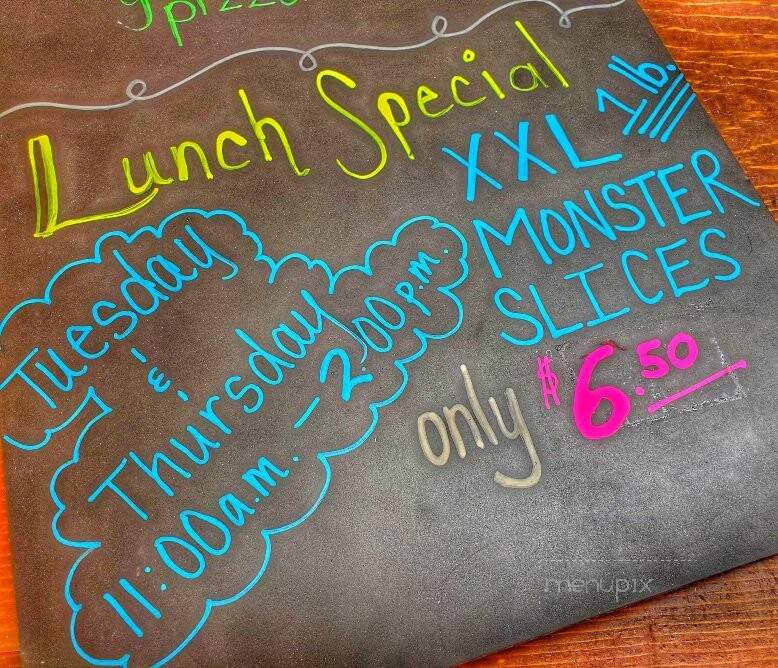 Lunch Special
XXL 1 lb.
MONSTER
SLICES
only $6.50
Tuesday
&
Thursday
11:00a.m. - 2:00p.m.
menupix